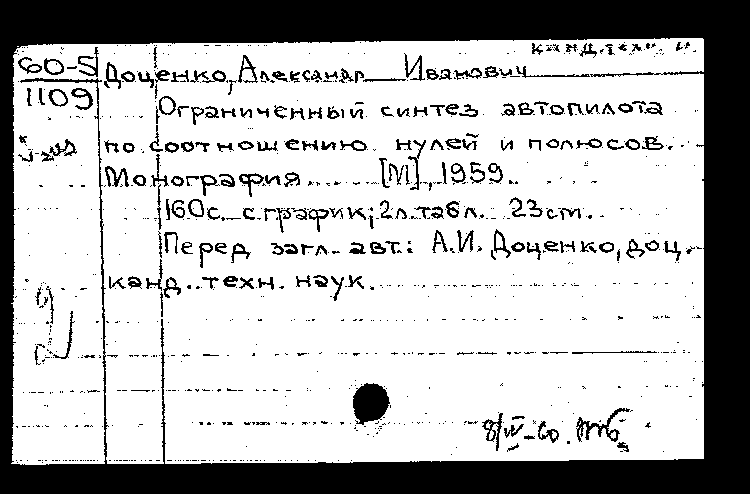 канд. техн. н.
60-5 Доценко, Александр Иванович
1109
Ограниченный синтез автопилота
по соотношению нулей и полюсов.
Монография. [М], 1959.
160 с. с график; 2 л. табл. 23 см.
Перед загл. авт.: А.И. Доценко, доц.
канд. техн. наук.
2
8/IV-60.